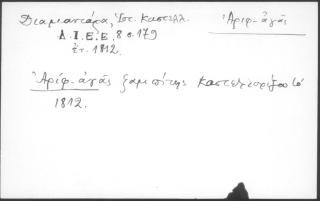 Διαμαντάρα, Ἱστ. Καστελλ.
Ἀρὶφ-ἀγᾶς
Δ.Ι.Ε.Ε. 8 σ. 179
ἔτ. 1812.
Ἀρὶφ-ἀγᾶς ζαμπίτης Καστελλορίζου τῷ
1812.